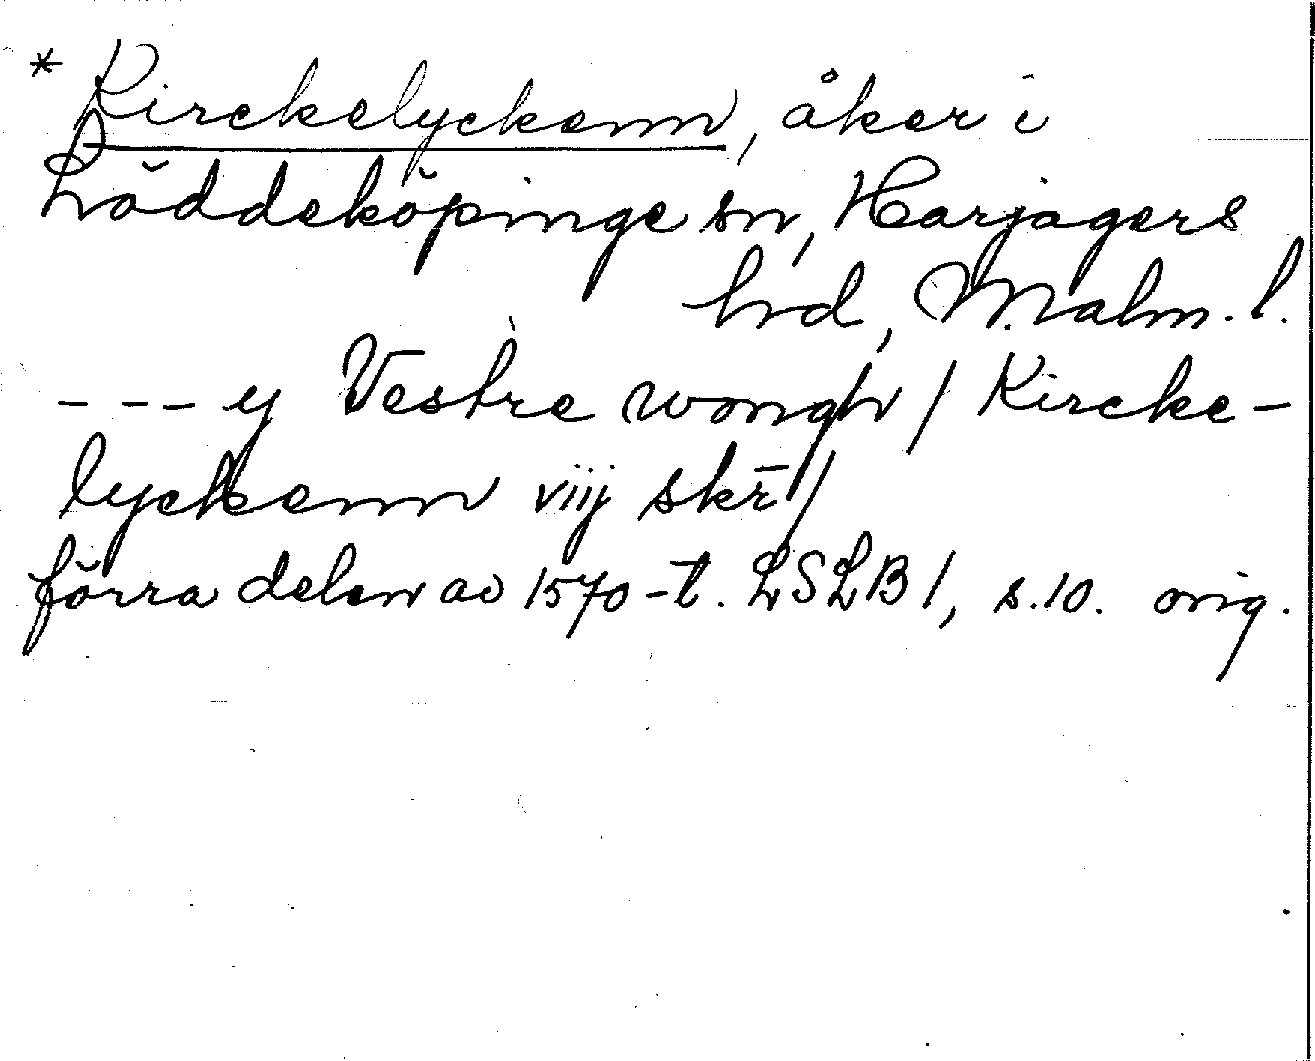 * Kirckelyckenn, åker i
Löddeköpinge sn, Harjagers
hd, Malm. l.
- - - y Vestre wongh / Kircke-
lyckenn viij skr̄ /
förra delen av 1570-t. LSLB 1, s. 10. orig.